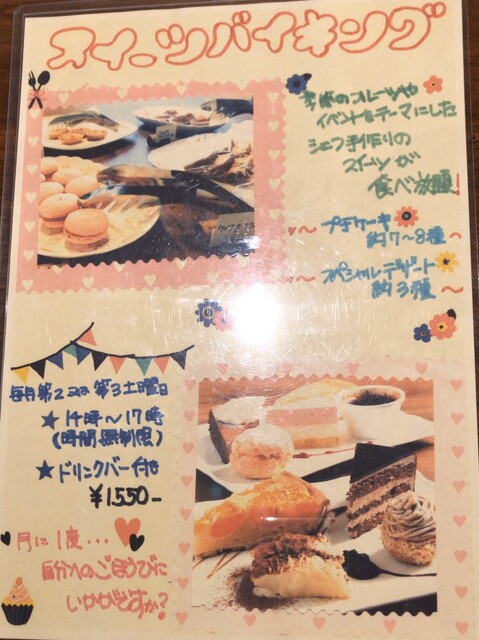 スイーツバイキング
季節のフルーツや
イベントをテーマにした
シェフ手作りの
スイーツが
食べ放題!
～プチケーキ
約7～8種～
～スペシャルデザート
約3種～
毎月第2又は第3土曜日
★14時～17時
(時間無制限)
★ドリンクバー付
¥1,550-
月に1度...
自分へのごほうびに
いかがですか?